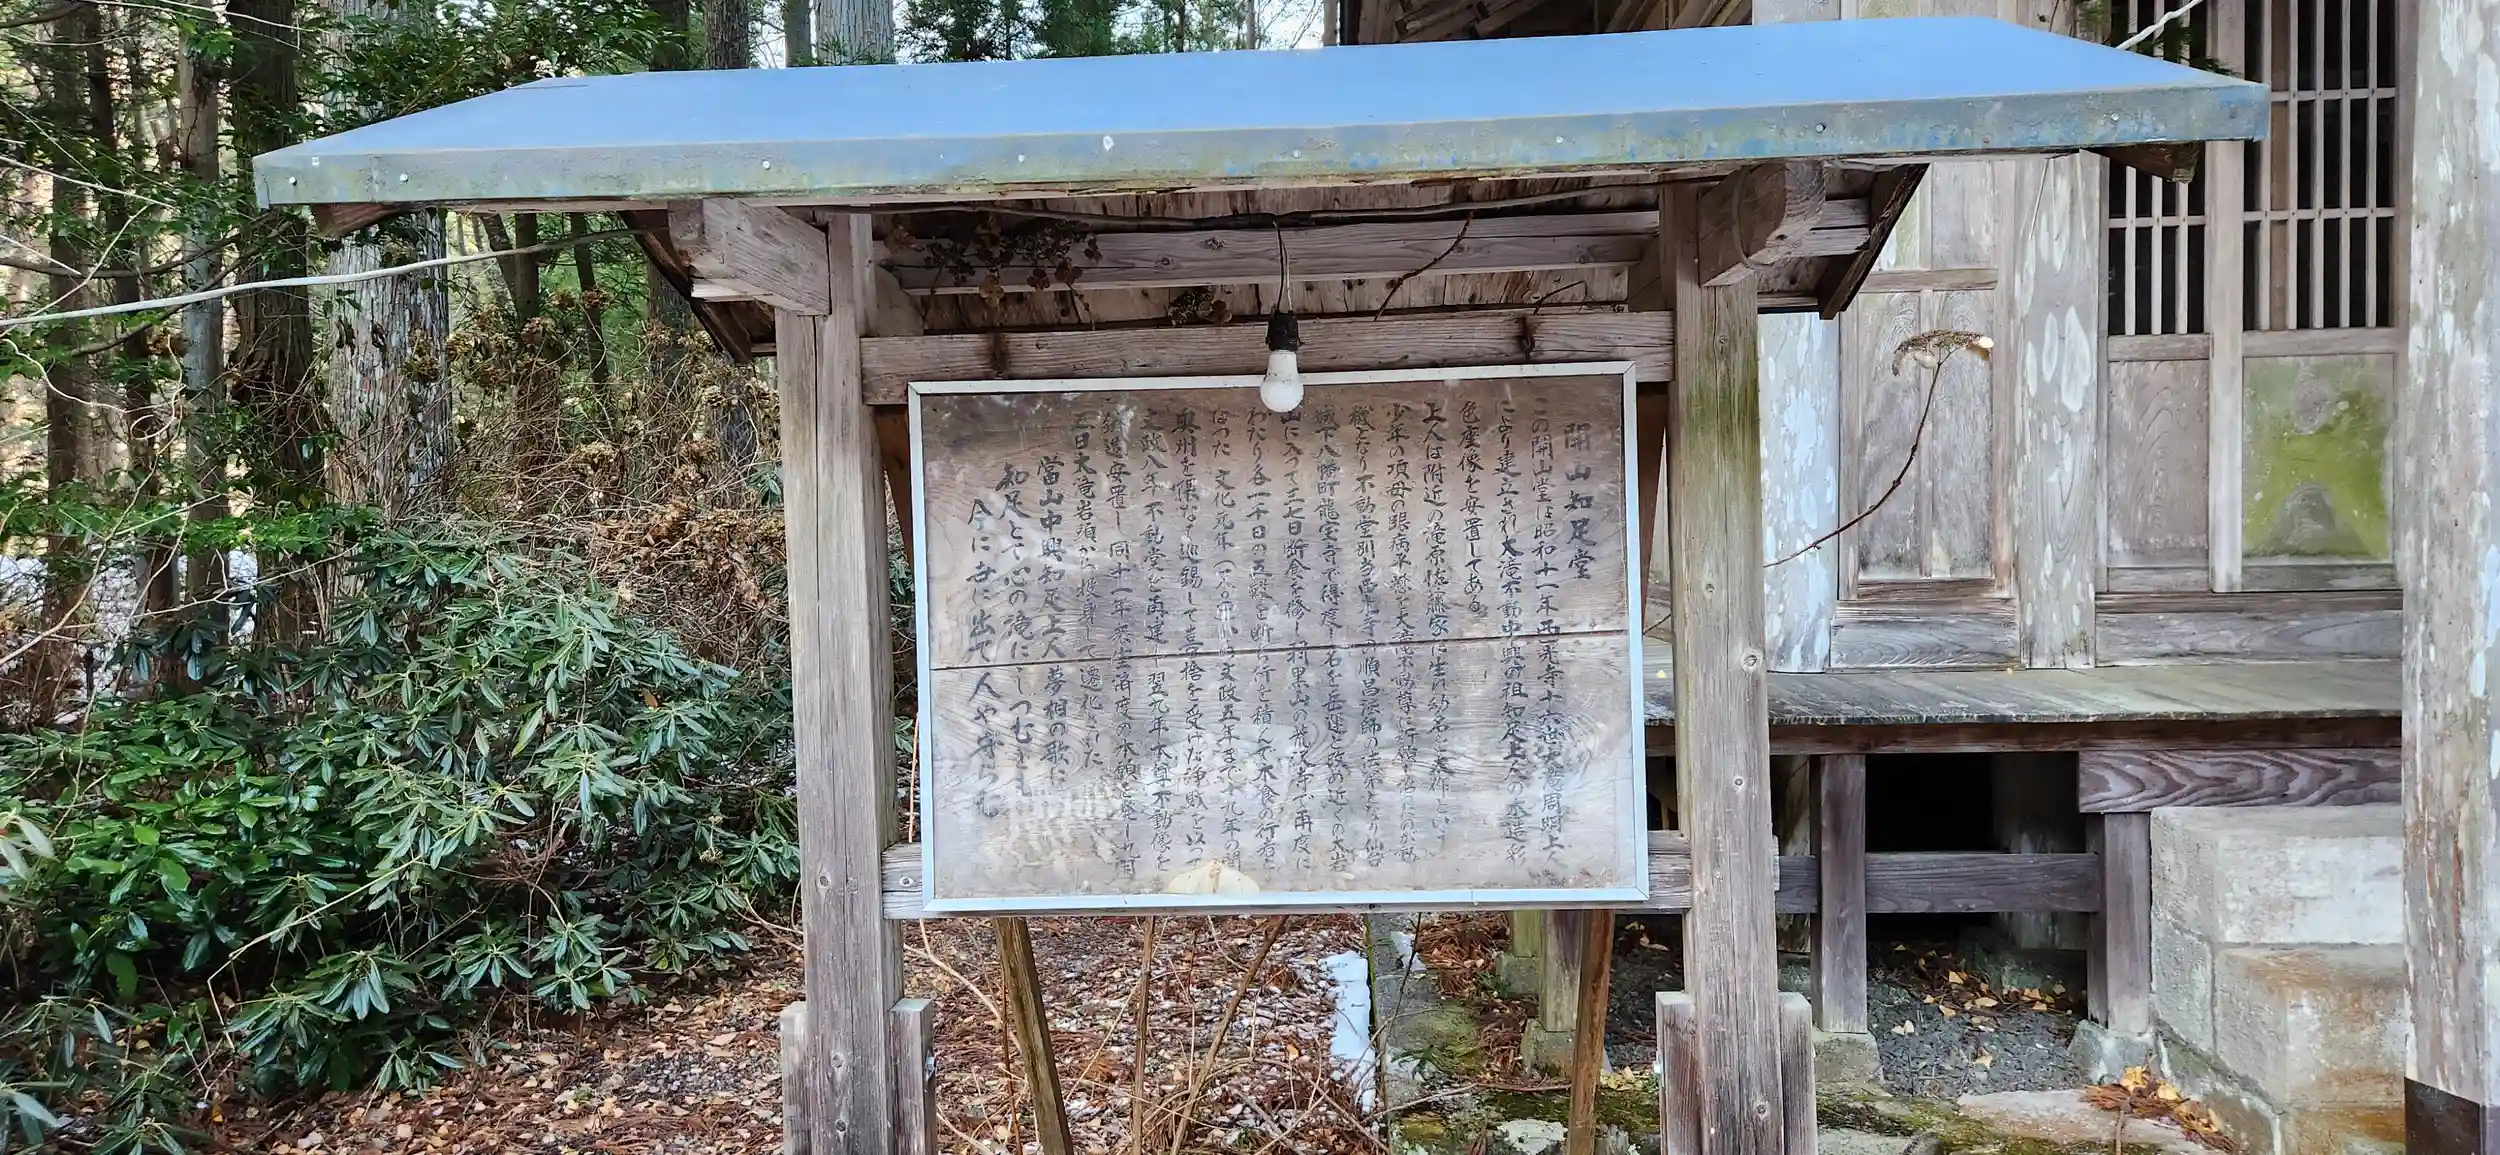 開山知足堂
この開山堂は昭和十一年西光寺十六世 周明上人
により建立され大滝不動中興の祖知足上人の木造彩
色座像を安置してある
上人は附近の滝原佐藤家に生れ幼名を 作といい
少年の頃母の眼病平癒を大滝不動尊に祈 のが動
機となり不動堂別当西光寺の順昌法師の法弟となり仙台
城下八幡町龍宝寺で得度し名を岳運と改め近くの太岩
山に入って三七日断食を修し羽黒山の龍沢寺で再度に
わたり各一千日の五穀を断ち行を積んで木喰の行者と
なった 文化元年 文政五年まで十九年の間
奥州を隈なく巡錫して喜捨を受けた浄財を以って
文政八年不動堂を再建し翌九年本尊不動像を
鋳造安置し同十一年衆生済度の本願を発し九月
五日大滝岩頭から投身して遷化された
當山中興知足上人夢相の歌に
知足とて心の滝にこしつむとし
今に世に出て人や守らむ